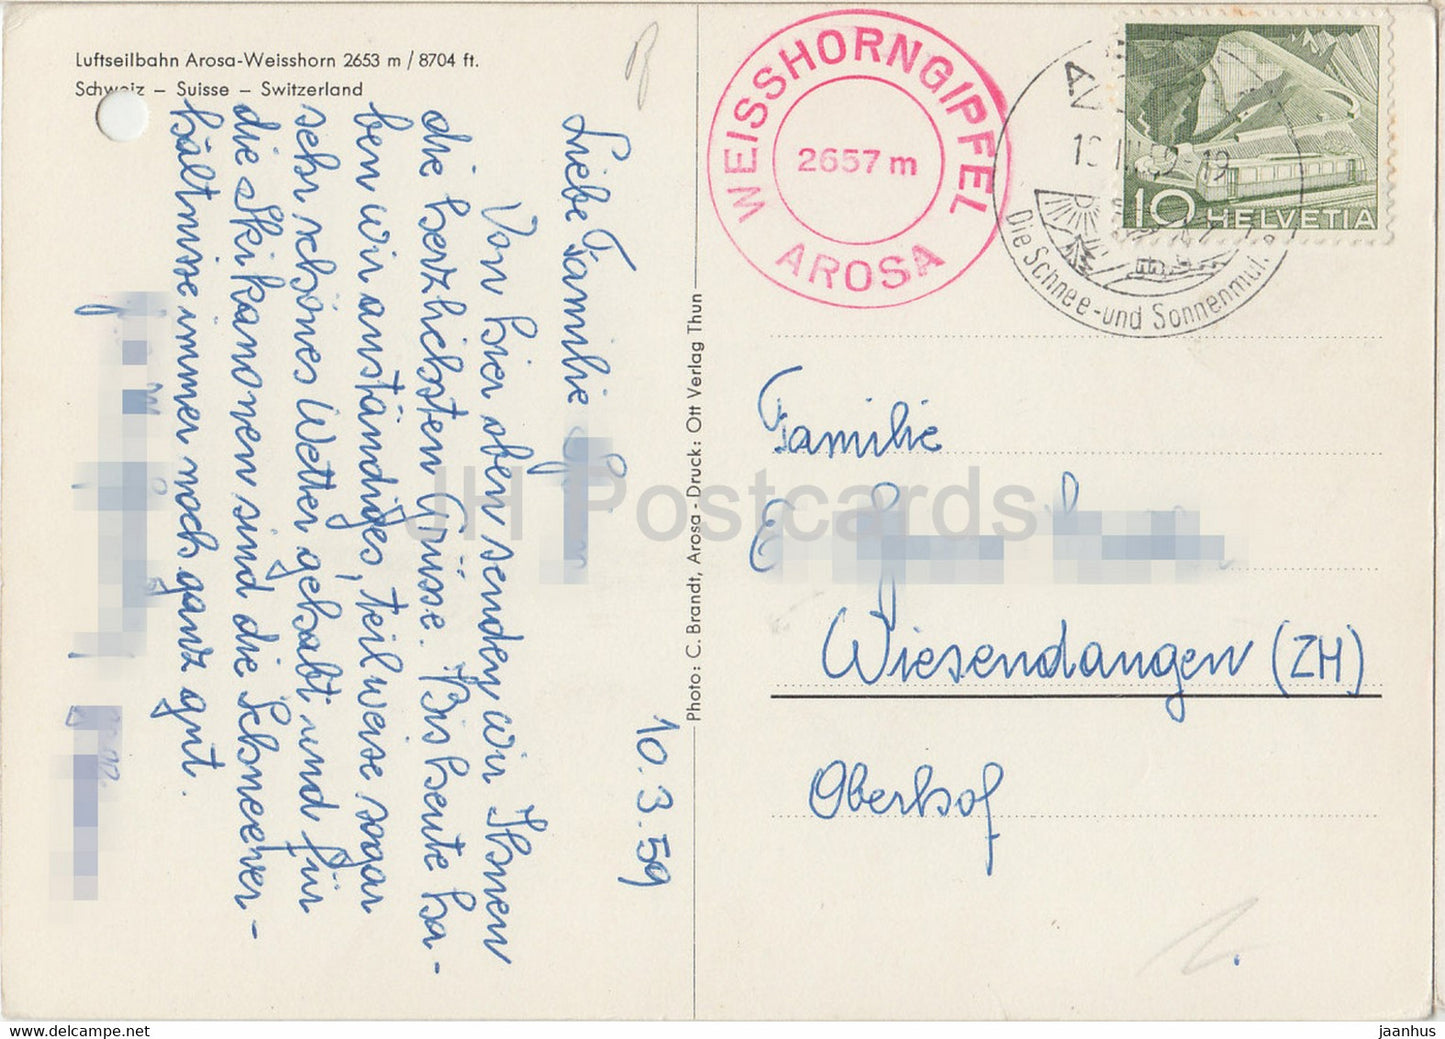 Luftseilbahn Arosa-Weisshorn 2653 m / 8704 ft.
Schweiz – Suisse – Switzerland
10.3.59
Liebe Familie
Von hier oben senden wir Ihnen
die herzlichsten Grüsse. Bis heute ha-
ben wir anständiges, teilweise sogar
sehr schönes Wetter gehabt und für
die Skikanonen sind die Schneever-
hältnisse immer noch ganz gut.
Photo: C. Brandt, Arosa - Druck: Ott Verlag Thun
WEISSHORNGIPFEL
2657 m
AROSA
10 HELVETIA
Die Schnee-und Sonnenmul
Familie
Wiesendangen (ZH)
Oberhof
JH Postcards
jaanhus